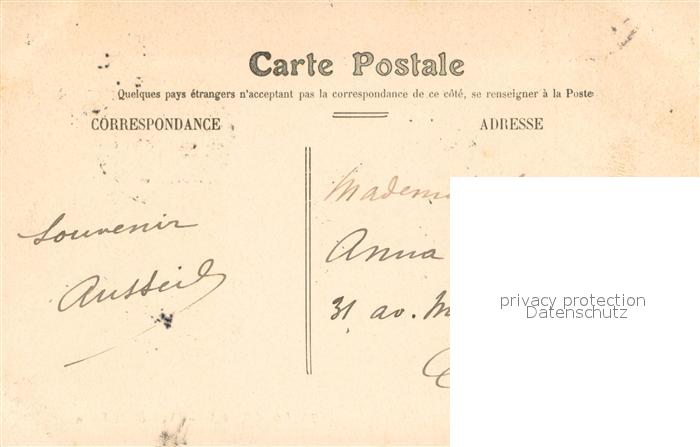 Carte Postale
Quelques pays étrangers n'acceptant pas la correspondance de ce côté, se renseigner à la Poste
CORRESPONDANCE
ADRESSE
Souvenir
Anna
31 av.
privacy protection
Datenschutz